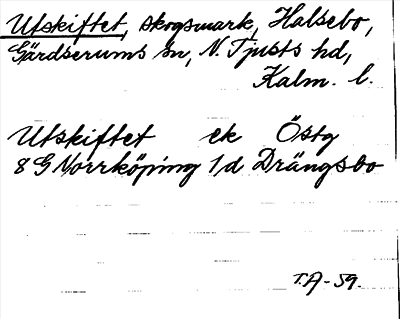 Utskiftet, skogsmark, Halsebo,
Gärdserums sn, N. Tjusts hd,
Kalm. l.
Utskiftet ek Östg
8 G Norrköping 1d Drängsbo
T.A-59.